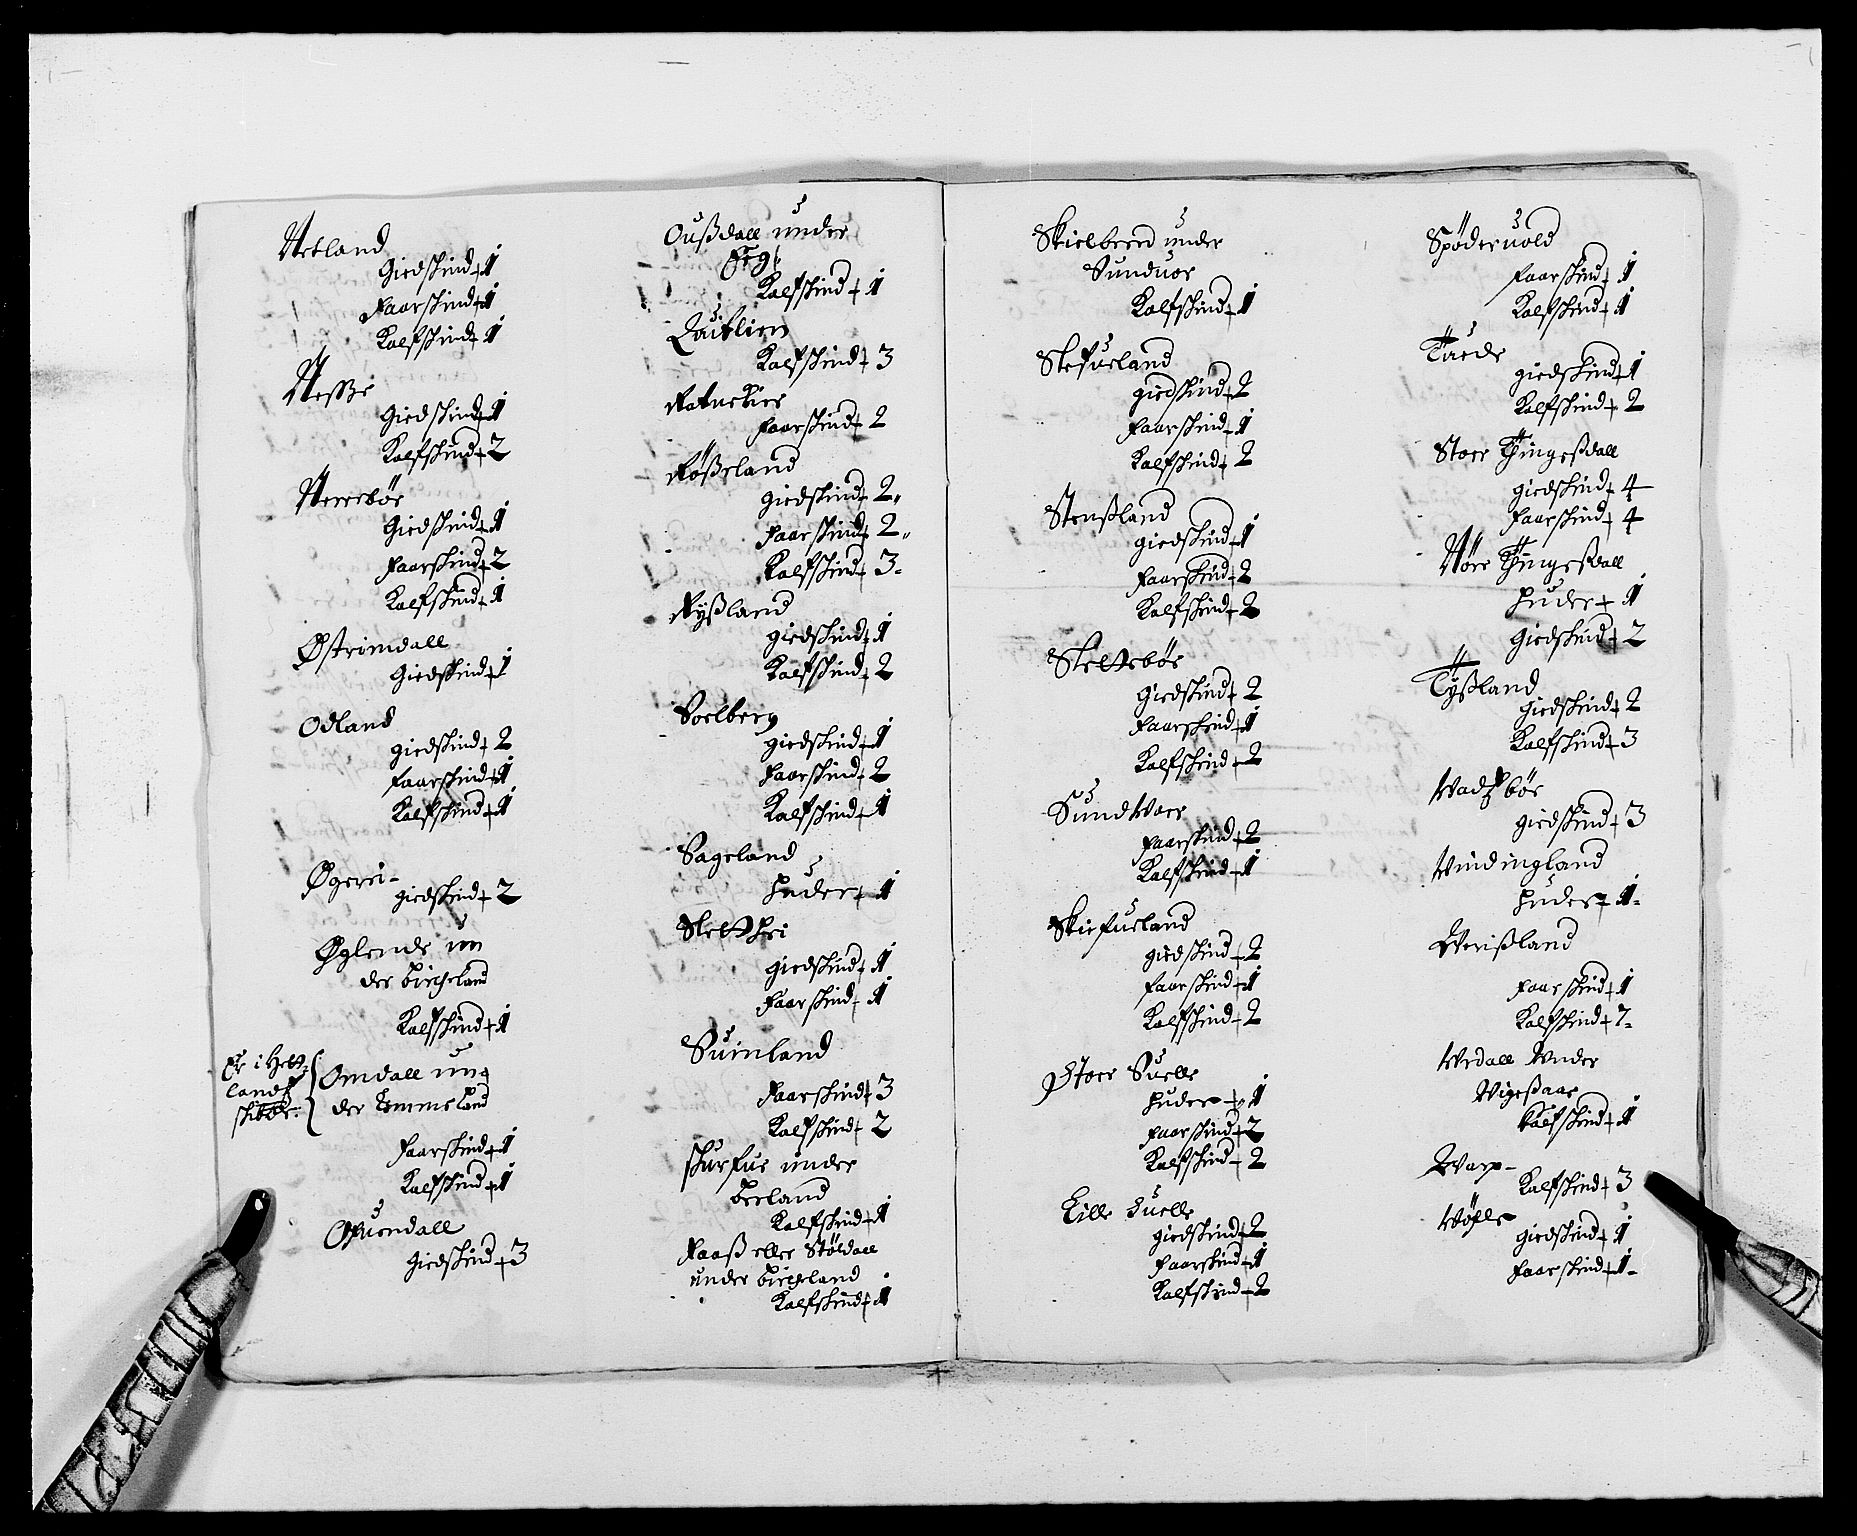 Netland
Giedskind + 1
Faarskind + 1
Kalfskind + 1
Nesse
Giedskind + 1
Kalfskind + 2
Nerrebøe
Giedskind + 1
Faarskind + 2
Kalfskind + 1
Østrimdall
Giedskind + 1
Odland
giedskind + 2
faarskind + 1
Kalfskind + 1
Øgrei -
giedskind + 2
Øglende un
der Birgeland
Kalfskind + 1
Er i Hett
landtz
skibbr:
Omdall un=
der Tommeland
Faarskind + 1
Kalfskind + 1
Ofuendall
giedskind + 3
Oußdall under
Kalfskind + 1
Qvitlien
Kalfskind + 3
faarskind + 2
Rößeland
giedskind + 2,
Faarskind + 2,,
Kalfskind + 3 -
Rysland
giedskind + 1
Kalfskind + 2
Soelberg
giedskind + 1
Faarskind + 2
Kalfskind + 1
Sageland
Huder + 1
Sletthei
giedskind + 1
Faarskind + 1
Suinland
Faarskind + 3
Kalfskind + 2
Skurfue under
Berland
Kalfskind + 1
Faaß eller Støldall
under Birgeland
Kalfskind + 1
Skielbreed under
Sunduor
Kalfskind + 1
Skefueland
giedskind + 2
Faarskind + 1
Kalfskind + 2
Stenßland
giedskind + 1
Faarskind + 2
Kalfskind + 2
Slettebøe
Giedskind + 2
Faarskind + 1
Kalfskind + 2
Sundwoer
Faarskind + 2
Kalfskind + 1
Skiefueland
giedskind - 2
faarskind + 1
Kalfskind - 2
Stoer Suelle
Huder + 1
Faarskind + 2
Kalfskind - 2
Lille Suelle
giedskind + 2
Faarskind + 1
Kalfskind - 2
Spøderuold
Faarskind + 1
Kalfskind + 1
Tuede
giedskind + 1
Kalfskind + 2
Stoer Thingeßdall
giedskind + 4
Faarskind + 4
Nöre Thingeßdall
Huder + 1
Giedskind + 2
Tyßland
giedskind + 2
Kalfskind + 3
Wadtzbøe
giedskind + 3
Windingland
Huder + 1 -
Werißland
Faarskind + 1
Kalfskind + 2 -
Wrdall under
Wigeßaae
Kalfskind + 1
Warp -
Kalfskind + 3
Wøfle
giedskind + 1
Faarskind + 1 -